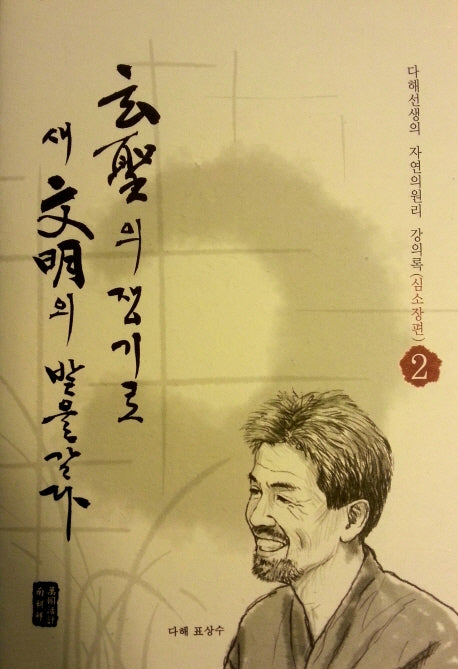 다해선생의 자연의원리 강의록(심소장편)
2
玄聖의 쟁기로
새 文明의 밭을갈다
다해 표상수